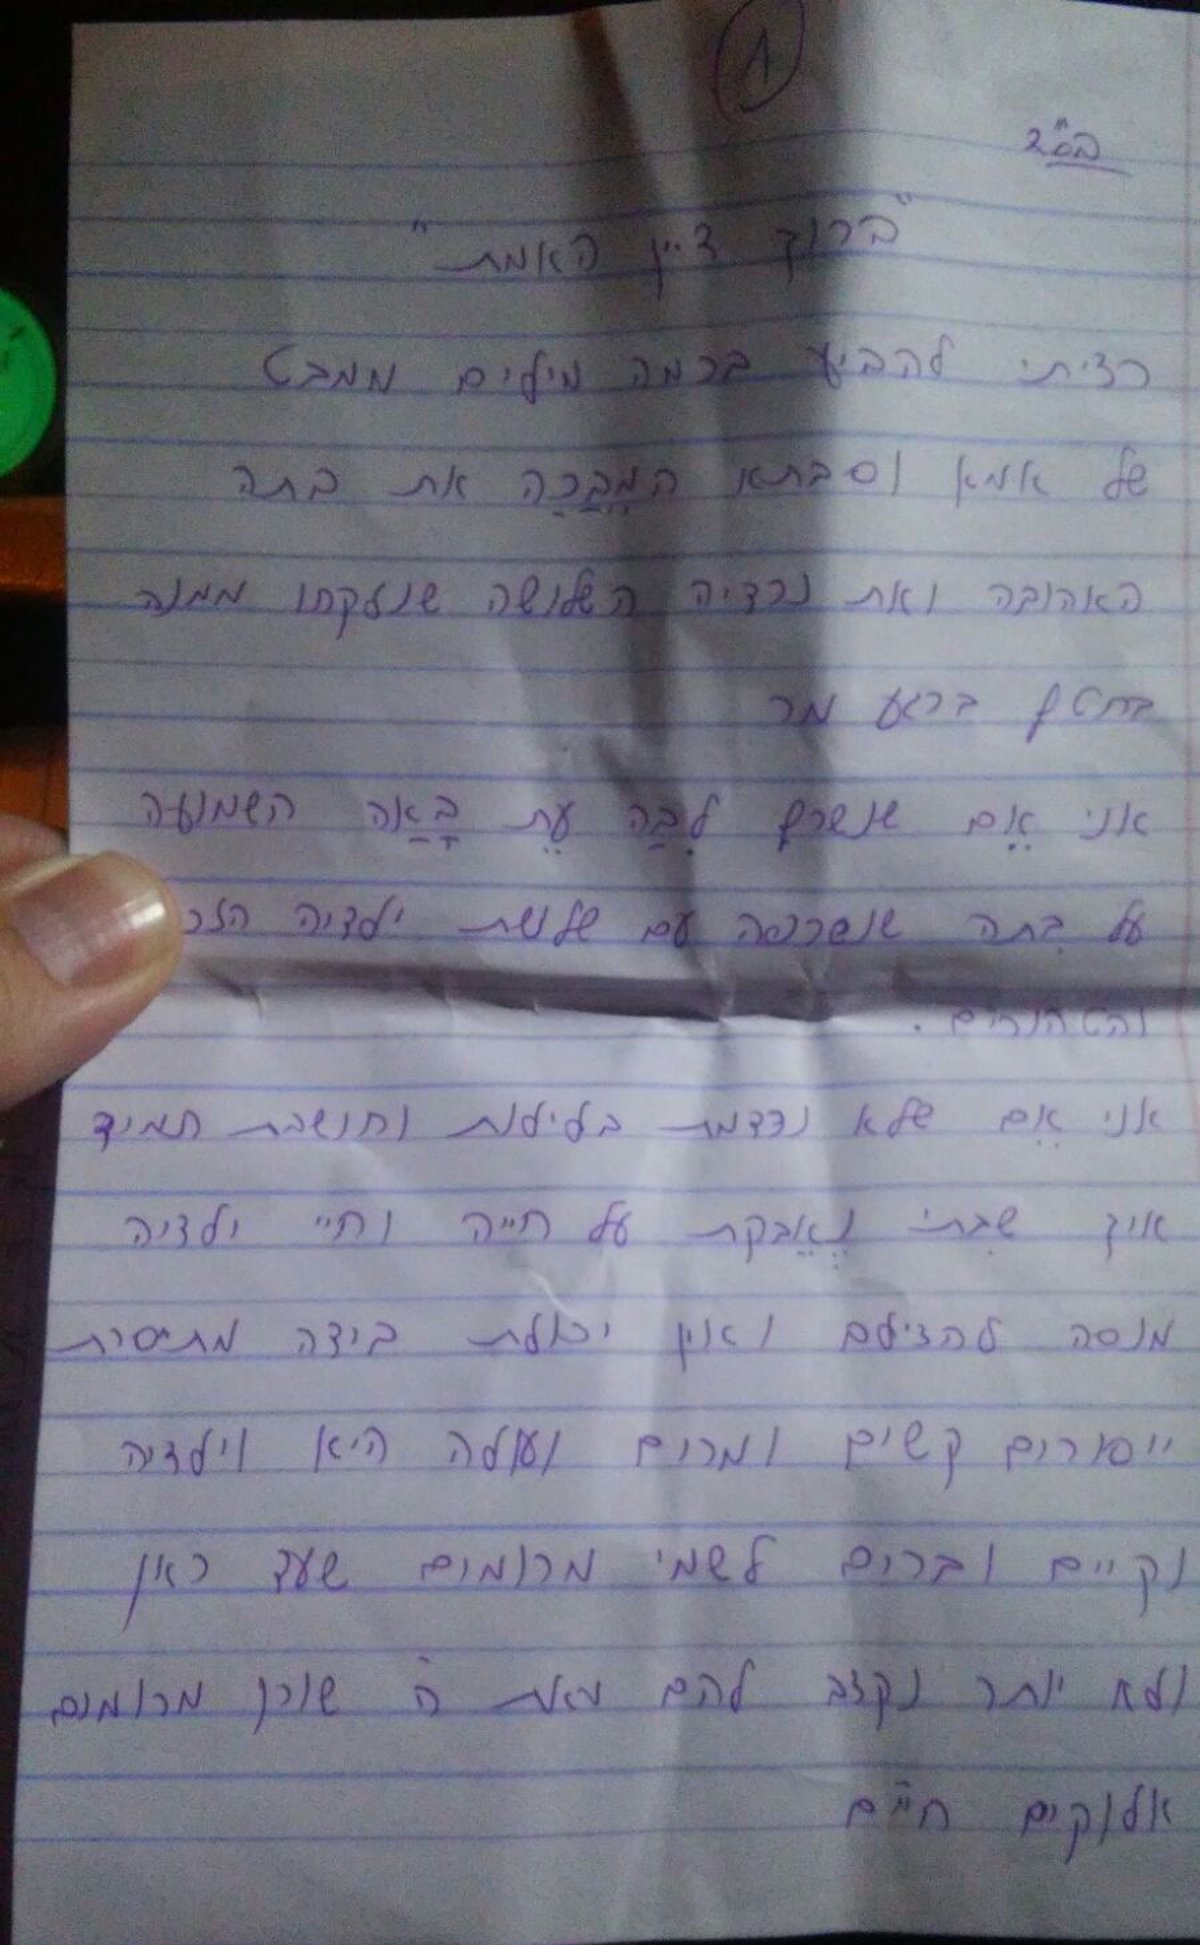 1
בס"ד
"ברוך דיין האמת"
רציתי להביע בכמה מילים ממבט
של אמא וסבתא הַמְבַכָּה את בתה
האהובה ואת נכדיה השלושה שנלקחו ממנה
בחטף ברגע מר
אני אֵם שנשרף לִבָּה עֵת בָּאָה השמועה
על בִּתה שנשרפה עם שלושת ילדיה הזכ
והטהורים.
אני אֵם שלא נרדמת בלילות וחושבת תמיד
איך שבִתי נֶאֱבקת על חייה וחיי ילדיה
מנסה להצילם ואין יכולת בידה מתיסרת
ייסורים קשים ומרים ועולה היא וילדיה
נקיים וברים לשמי מרומים שעד כאן
ולא יותר נקצב להם מאת ה' שוכן מרומים
אלוקים חיים